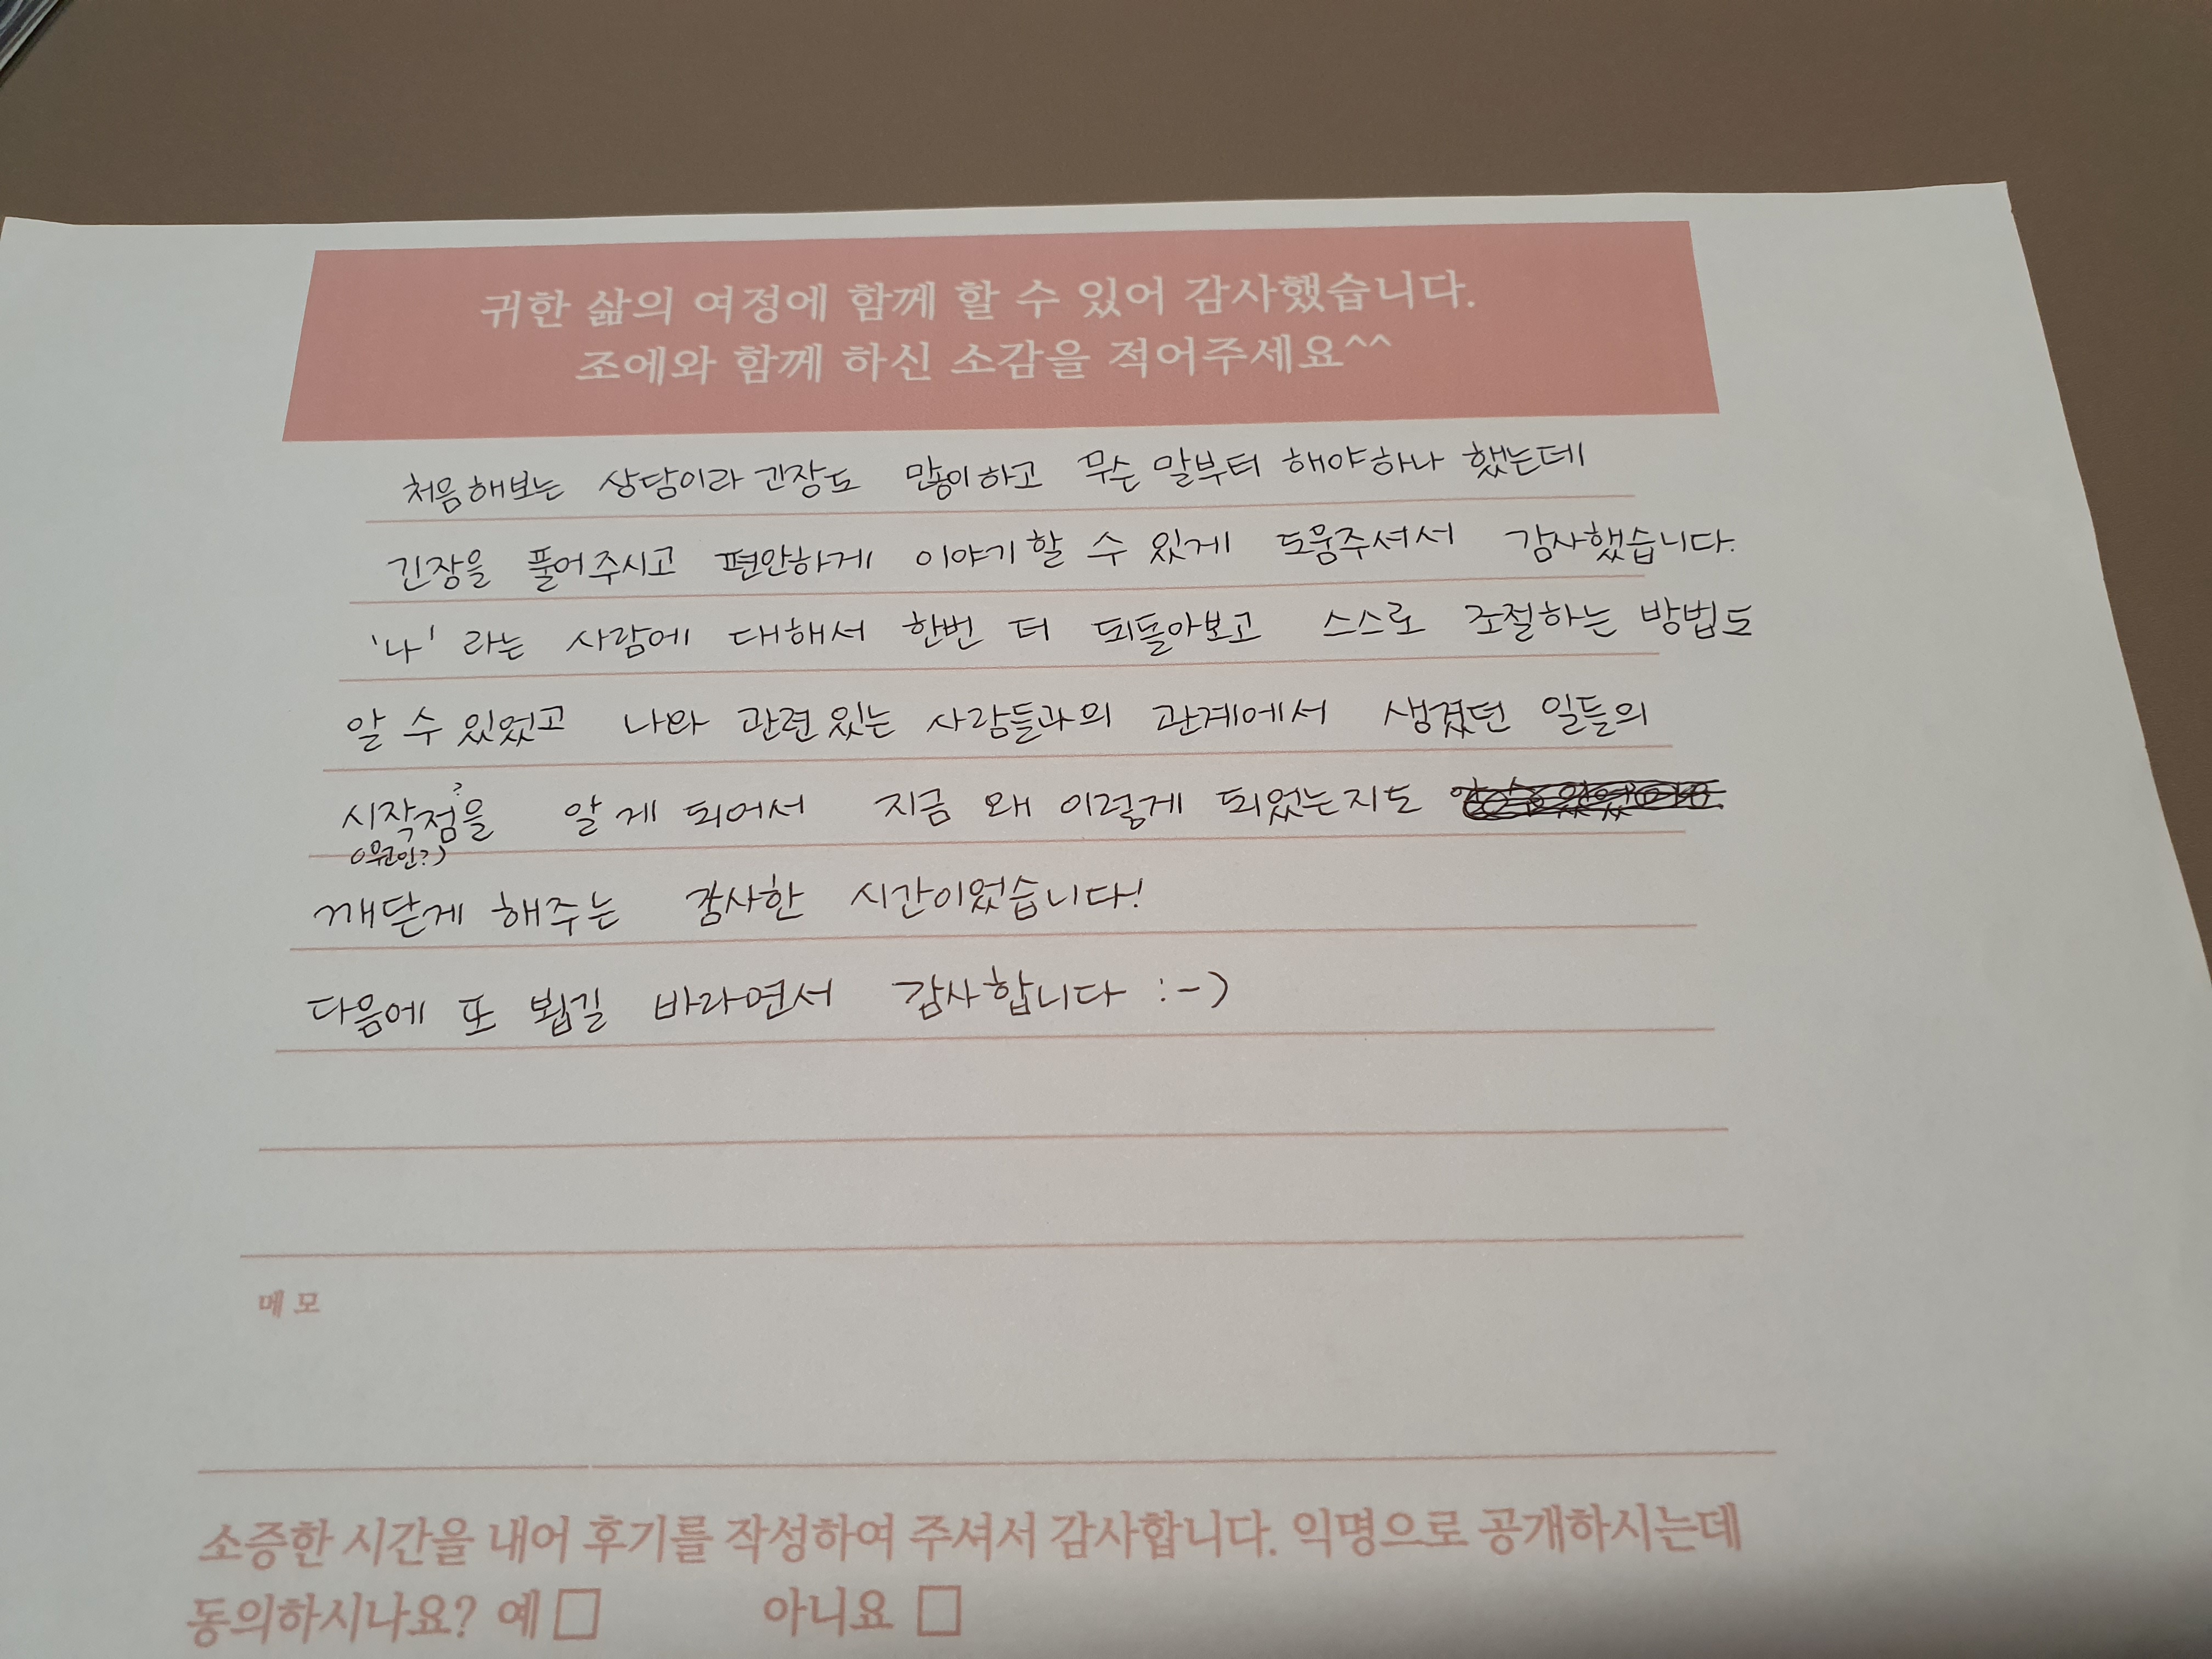 귀한 삶의 여정에 함께 할 수 있어 감사했습니다.
조에와 함께 하신 소감을 적어주세요^^
처음해보는 상담이라 긴장도 많이하고 무슨 말부터 해야하나 했는데
긴장을 풀어주시고 편안하게 이야기할 수 있게 도움주셔서 감사했습니다.
'나' 라는 사람에 대해서 한번 더 되돌아보고 스스로 조절하는 방법도
알 수 있었고 나와 관련있는 사람들과의 관계에서 생겼던 일들의
시작점?을 알게 되어서 지금 왜 이렇게 되었는지도
(원인?)
깨닫게 해주는 감사한 시간이었습니다!
다음에 또 뵙길 바라면서 감사합니다 :-)
메모
소증한 시간을 내어 후기를 작성하여 주셔서 감사합니다. 익명으로 공개하시는데
동의하시나요? 예 □ 아니요 □